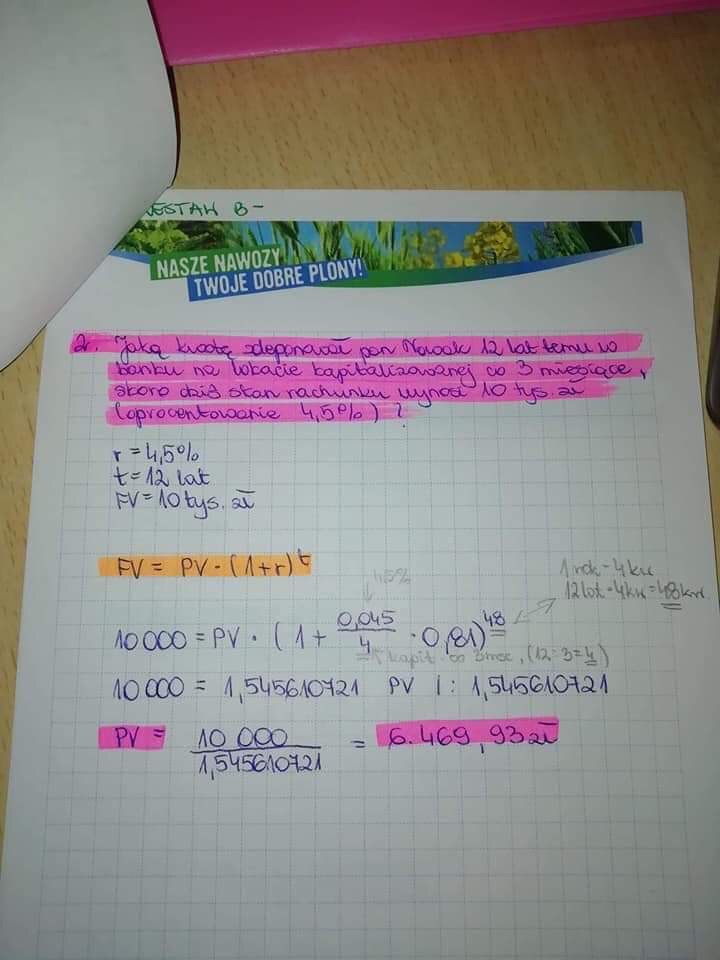 ZESTAW B-
NASZE NAWOZY
TWOJE DOBRE PLONY!
2. Jaką kwotę zdeponował pan Nowak 12 lat temu w
banku na lokacie kapitalizowanej co 3 miesiące,
skoro dziś stan rachunku wynosi 10 tys. zł
(oprocentowanie 4,5%)?
r = 4,5%
t = 12 lat
FV = 10 tys. zł
FV = PV · (1+r)^t
4,5%
1 rok - 4 kw
12 lat · 4 kw = 48 kw.
10 000 = PV · (1 + 0,045/4 · 0,81)^48
kapit. co 3 msc, (12:3=4)
10 000 = 1,545610721 PV |: 1,545610721
PV = 10 000/1,545610721 = 6.469,93 zł